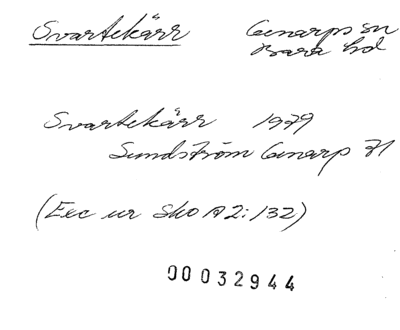 Svartekärr Genarps sn
Bara hd
Svartekärr 1979
Sundström Genarp 71
(Exc ur SkO A2:132)
00032944